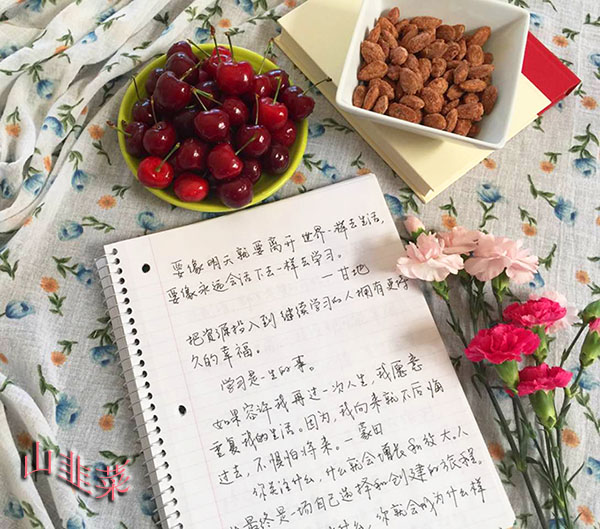 要像明天就要离开世界一样去生活,
要像永远会活下去一样去学习。
—甘地
把资源投入到继续学习的人拥有更持
久的幸福。
学习是一生的事。
如果容许我再过一次人生,我愿意
重复我的生活。因为,我向来就不后悔
过去,不惧怕将来。—蒙田
你关注什么,什么就会增长和放大。人
最终是一场自己选择和创建的旅程。
什么,你就会成为什么样
山韭菜